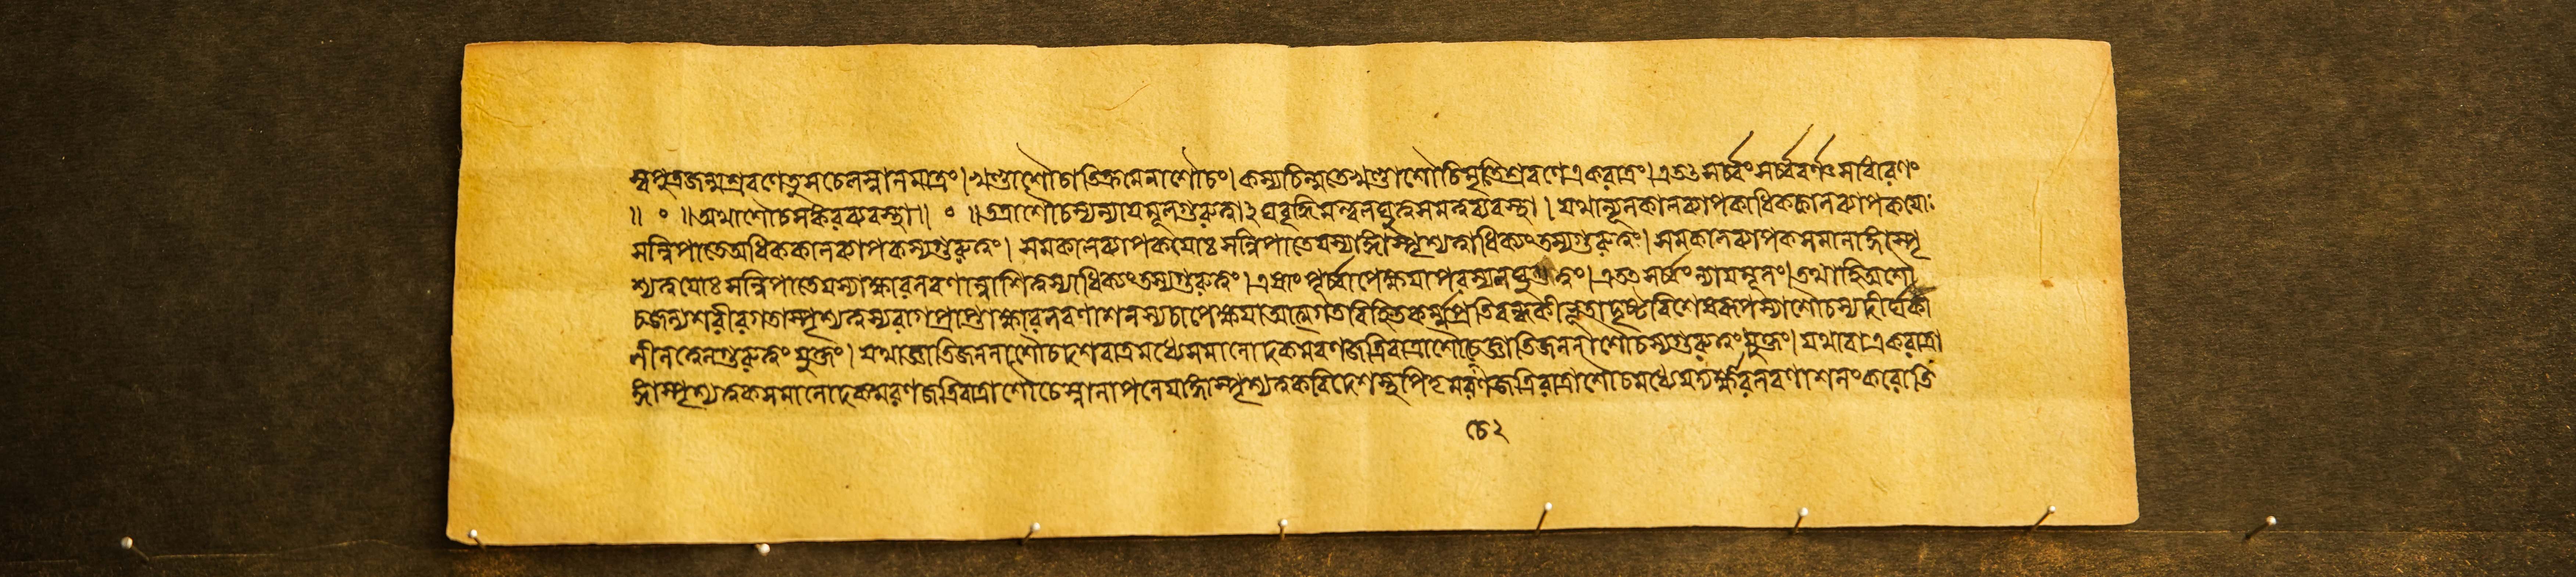 স্বপুত্রজন্মশ্রবণেতুসচেলস্নানমাত্রং। খণ্ডাশৌচাতিক্রমেনাশৌচং। কস্যচিন্মতেখণ্ডাশৌচিমৃতিশ্রবণেএকরাত্রং। এতৎ সর্ব্বং সর্ব্ববর্ণ সাধারণং
॥ ० ॥ অথাশৌচসঙ্করব্যবস্থা ॥ ० ॥ তত্রাশৌচস্যন্যায়মূলগুরুত্ব লঘুত্বসমত্বব্যবস্থা। যথান্যূনকালব্যাপকাধিককালব্যাপকয়োঃ
সন্নিপাতেঅধিককালব্যাপকস্যগুরুত্বং। সমকালব্যাপকয়োঃ সন্নিপাতেযস্যাঙ্গাস্পৃশ্যত্বাধিক্যং তস্যগুরুত্বং। সমকালব্যাপকসমানাঙ্গাস্পৃ
শ্যত্বয়োঃ সন্নিপাতেযস্যাক্ষারলবণান্নাশিত্বস্যাধিক্যং তস্যগুরুত্বং। এষাং পূর্ব্বাপেক্ষয়াপরস্যলঘুত্বং। এতৎ সর্ব্বং ন্যায়মূলং। তথাহিঅশৌ
চজন্যশরীরগতাস্পৃশ্যত্বস্যরাগপ্রাপ্তাক্ষারলবণাশনস্যচাপেক্ষয়াআত্মগতবিহিতকর্ম্মপ্রতিবন্ধকীভূতাদৃষ্টবিশেষরূপস্যাশৌচস্যদীর্ঘকা
লীনত্বেনগুরুত্বং যুক্তং। যথাজ্ঞাতিজননাশৌচদশরাত্রমধ্যেসমানোদকমরণজত্রিরাত্রাশৌচেজ্ঞাতিজননাশৌচস্যগুরুত্বং যুক্তং। যথাবাএকরাত্রা
ঙ্গাস্পৃশ্যত্বকসমানোদকমরণজত্রিরাত্রাশৌচেস্নানাপনেয়াঙ্গাস্পৃশ্যত্বকবিদেশস্থপিতৃমরণজত্রিরাত্রাশৌচমধ্যে লবণাশনংকরোতি
চে২